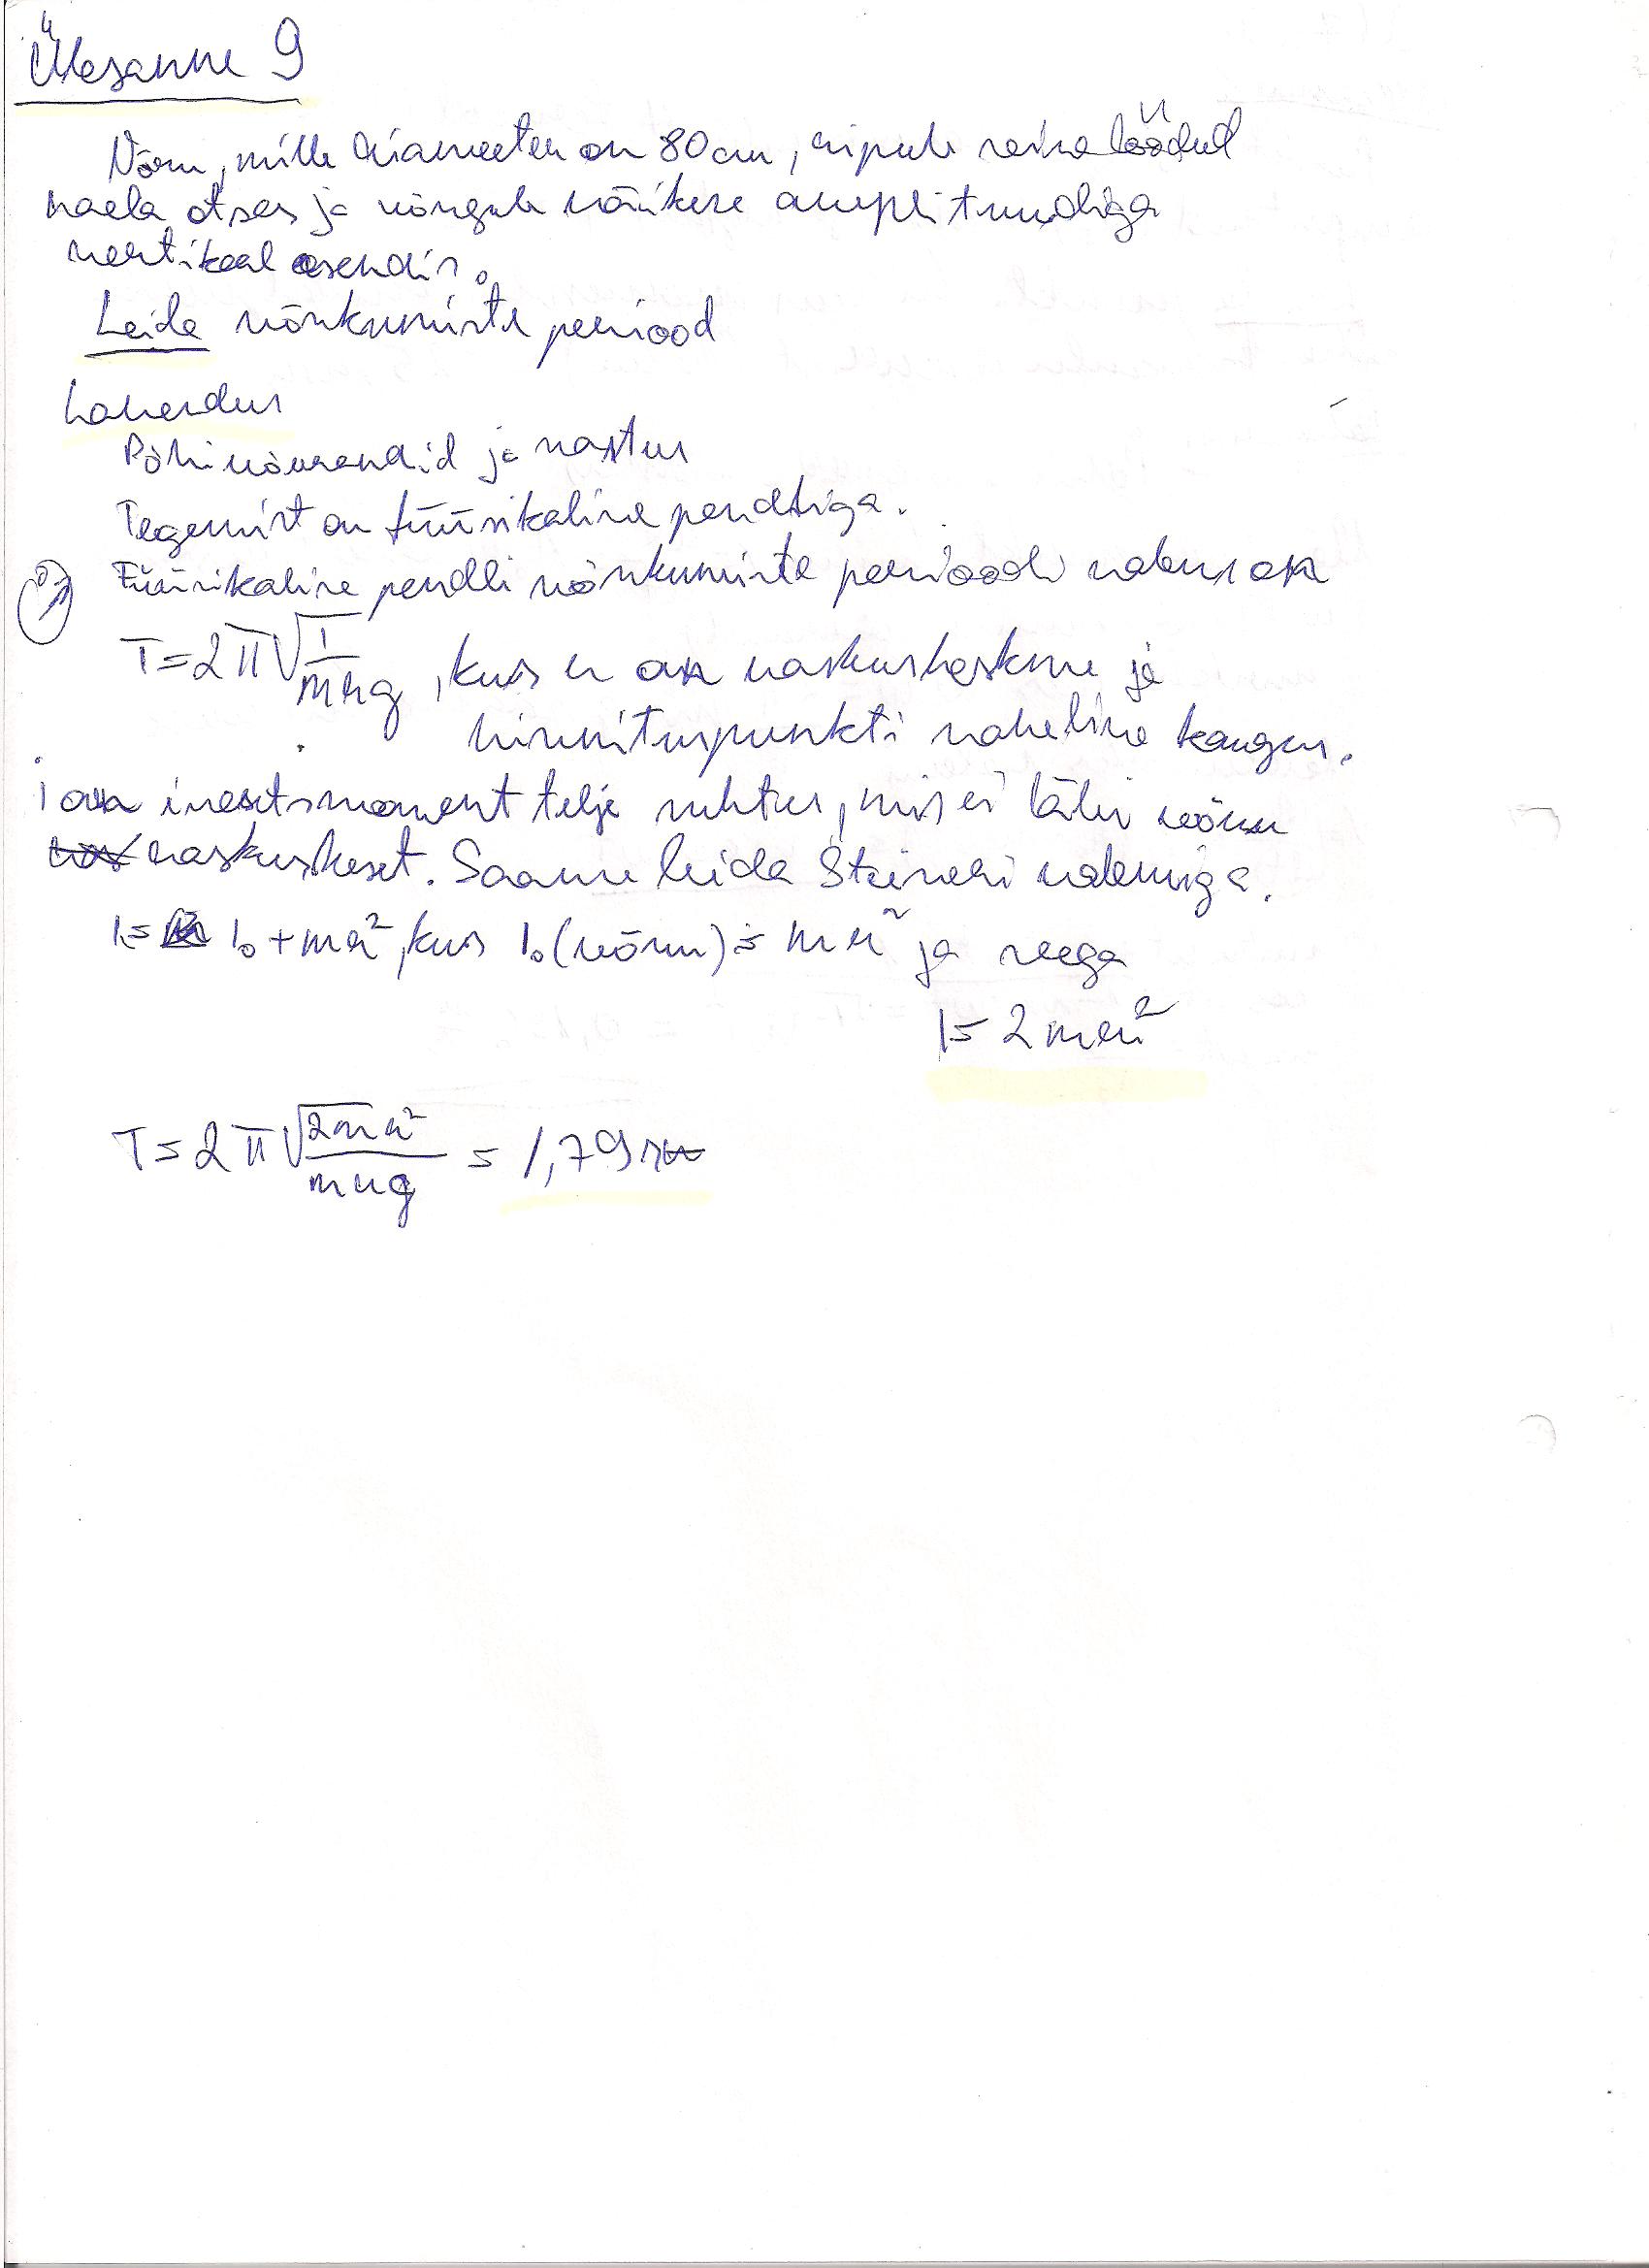 Ülesanne 9
Võru, mille diameeter on 80 cm, ripub seina löödud
naela otsas ja võngub väikese amplituudiga
vertikaalasendis.
Leida võnkumiste periood
Lahendus
Põhivõrrandid ja vastus
Tegemist on füüsikaline pendliga.
Füüsikaline pendli võnkumiste perioodi valem on
T=2π√I/mrg, kus r on raskuskeskme ja
kinnituspunkti vaheline kaugus.
I on inertsmoment telje suhtes, mis ei läbi võru
raskuskeset. Saame leida Steineri valemiga.
I= I₀+mr², kus I₀(võru)= mr² ja seega
I= 2mr²
T=2π√2mr²/mrg = 1,79s